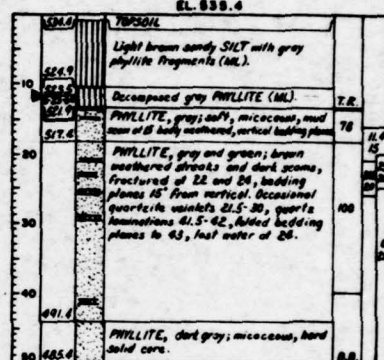 EL. 535.4
534.4 TOPSOIL
Light brown sandy SILT with gray
phyllite fragments (ML).
524.9
523.5
Decomposed gray PHYLLITE (ML).
T.R.
521.9
PHYLLITE, gray; soft, micaceous, mud
seam at 15 badly weathered, vertical bedding planes
78
517.4
11.4
15
PHYLLITE, gray and green; brown
weathered streaks and dark seams,
fractured at 22 and 24, bedding
planes 15° from vertical. Occasional
quartzite veinlets 21.5-30, quartz
laminations 41.5-42, folded bedding
planes to 43, lost water at 24.
100
10
20
30
40
50
491.4
PHYLLITE, dark gray; micaceous, hard
solid core.
485.4